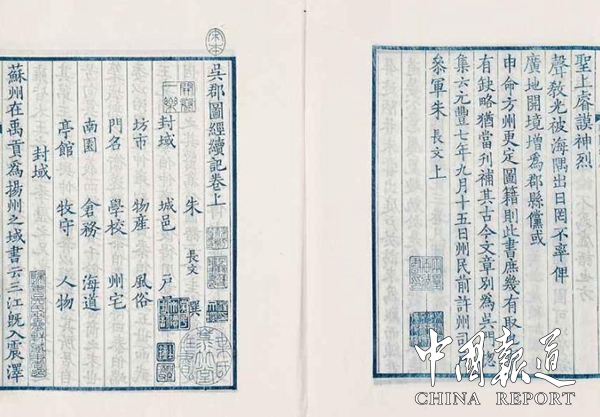 聖上睿謨神烈
聲敎光被海隅出日罔不率俾
廣地開境增爲郡縣儻或
申命方州更定圖籍則此書庶幾有取
有缺略猶當刊補其古今文章別為吳門總
集云元豐七年九月十五日州民前許州司
叅軍朱 長文 上
宋本
吳郡圖經續記卷上
朱 長文 撰
封域 城邑 戶
坊市 物産 風俗
門名 學校 州宅
南園 倉務 海道
亭館 牧守 人物
封域
蘇州在禹貢爲揚州之域書云三江旣入震澤
中國報道
CHINA REPORT